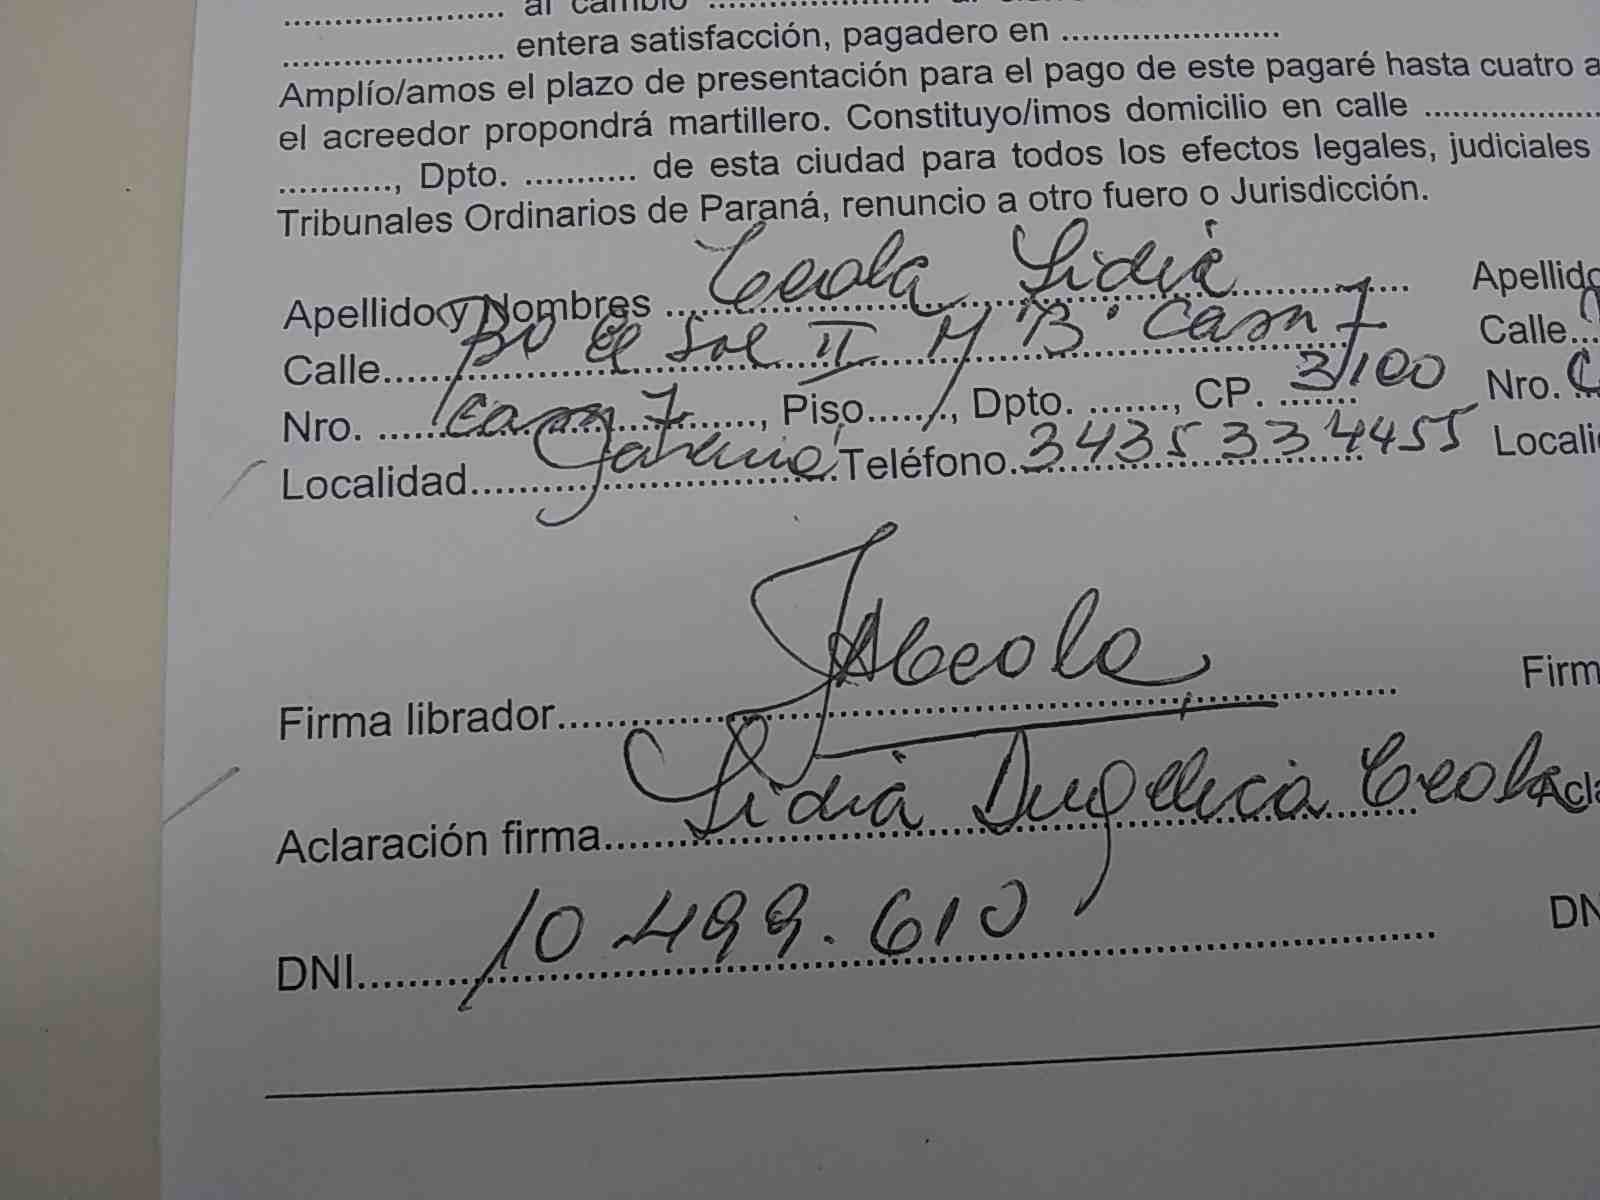 ..................... al cambio .....................
..................... entera satisfacción, pagadero en .....................
Amplío/amos el plazo de presentación para el pago de este pagaré hasta cuatro a
el acreedor propondrá martillero. Constituyo/imos domicilio en calle .................
..........., Dpto. ........... de esta ciudad para todos los efectos legales, judiciales
Tribunales Ordinarios de Paraná, renuncio a otro fuero o Jurisdicción.
Apellido y Nombres ... Ceola Lidia ... Apellido
Calle... Bº el Sol II M "B" Casa 7 Calle...
Nro. ... casa 7 ..., Piso...../., Dpto. ......., CP. 3100 Nro.
Localidad... Paraná Teléfono. 3435334455 Locali
Firma librador... Ceola Firm
Aclaración firma... Lidia Angelica Ceola Acla
DNI... 10.499.610 DN